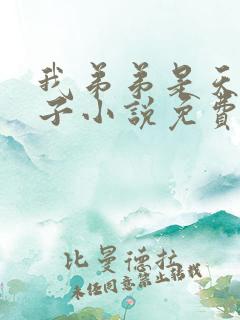 我弟弟是天
子小説免費
比曼德拉
未经同意禁止转载